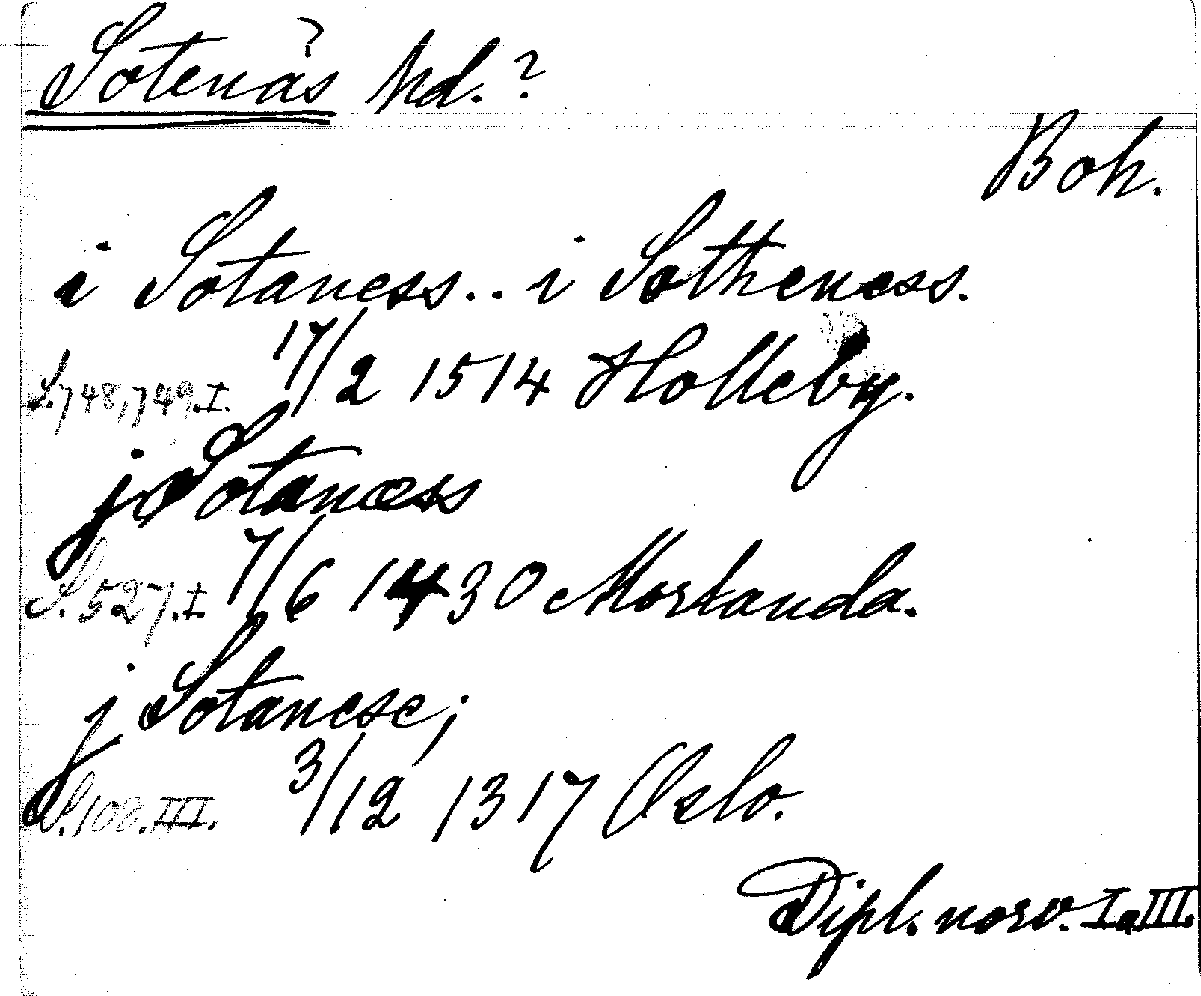 Sotenäs hd.?
Boh.
i Sotaness.. i Sotheness.
S. 748, 749. I. 17/2 1514 Holleby.
j Sotanæss
S. 527. I. 7/6 1430 Morlanda.
j Sotanese;
S. 100. III. 3/12 1317 Oslo.
Dipl. norv. I o III.